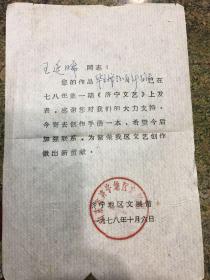 王延臣同志：
您的作品已在
七八年第一期《济宁文艺》上发
表，感谢您对我们的大力支持。
今寄去创作手册一本，希望今后
加强联系，为繁荣我区文艺创作
做出新贡献。
济宁地区文展馆
一九七八年十月六日